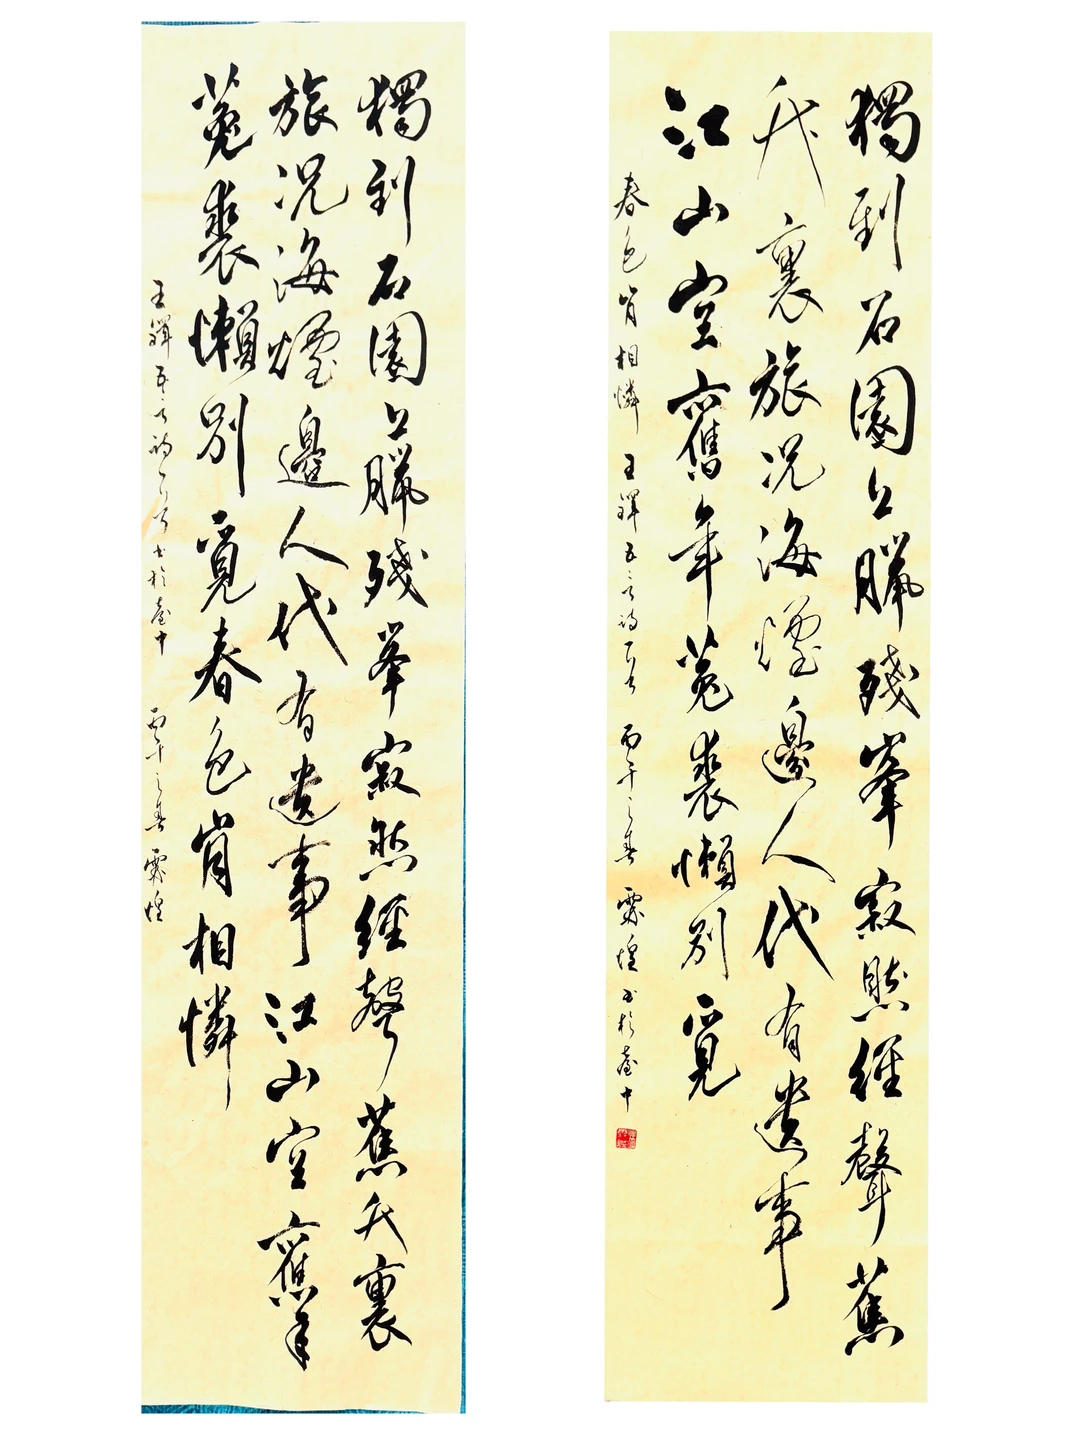 獨到石園上臘殘峯寂然經聲蕉
裏旅況海煙邊人代有遺事
江山空舊年菟裘懶別覓
春色肯相憐 王鐸五言詩一首 丙午之春 煌書於臺中
獨到石園上臘殘峯寂然經聲蕉裏
旅況海煙邊人代有遺事江山空舊年
菟裘懶別覓春色肯相憐
王鐸五言詩一首書於臺中 丙午之春 煌